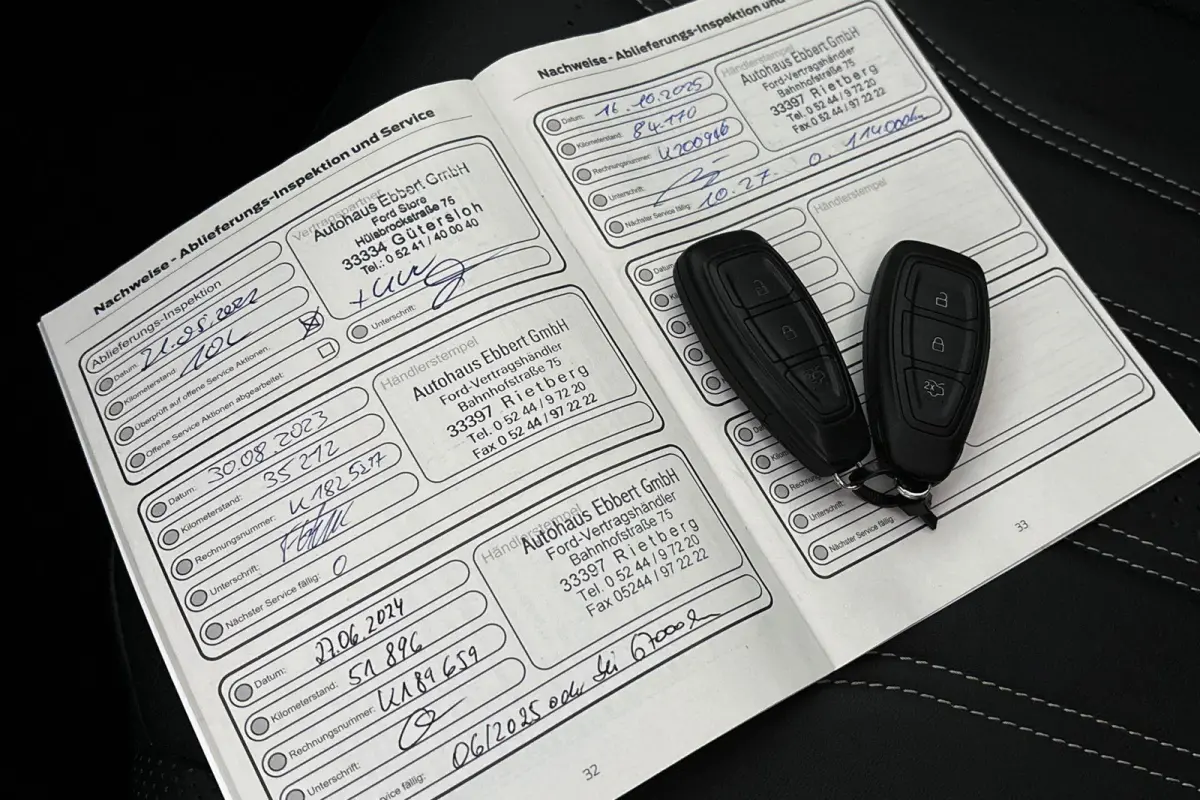 Nachweise - Ablieferungs-Inspektion und Service
Ablieferungs-Inspektion
Datum: 21.09.2022
Kilometerstand: 10k
Überprüft auf offene Service Aktionen:
Offene Service Aktionen abgearbeitet:
Vertragspartner
Autohaus Ebbert GmbH
Ford Store
Hülsbrockstraße 75
33334 Gütersloh
Tel.: 0 52 41 / 40 00 40
Unterschrift:
Datum: 30.08.2023
Kilometerstand: 35 212
Rechnungsnummer: K182527
Unterschrift:
Nächster Service fällig: 0
Händlerstempel
Autohaus Ebbert GmbH
Ford-Vertragshändler
Bahnhofstraße 75
33397 Rietberg
Tel. 0 52 44 / 9 72 20
Fax 0 52 44 / 97 22 22
Datum: 27.06.2024
Kilometerstand: 51 896
Rechnungsnummer: K189659
Unterschrift:
Service fällig: 06/2025 oder bei 67000km
Händlerstempel
Autohaus Ebbert GmbH
Ford-Vertragshändler
Bahnhofstraße 75
33397 Rietberg
Tel. 0 52 44 / 9 72 20
Fax 05244 / 97 22 22
32
Nachweise - Ablieferungs-Inspektion und
Datum: 16.10.2025
Kilometerstand: 84.170
Rechnungsnummer: K200946
Unterschrift:
Nächster Service fällig: 10.27. o. 114000km
Händlerstempel
Autohaus Ebbert GmbH
Ford-Vertragshändler
Bahnhofstraße 75
33397 Rietberg
Tel. 0 52 44 / 9 72 20
Fax 0 52 44 / 97 22 22
Händlerstempel
Unterschrift:
Nächster Service fällig:
33
2x